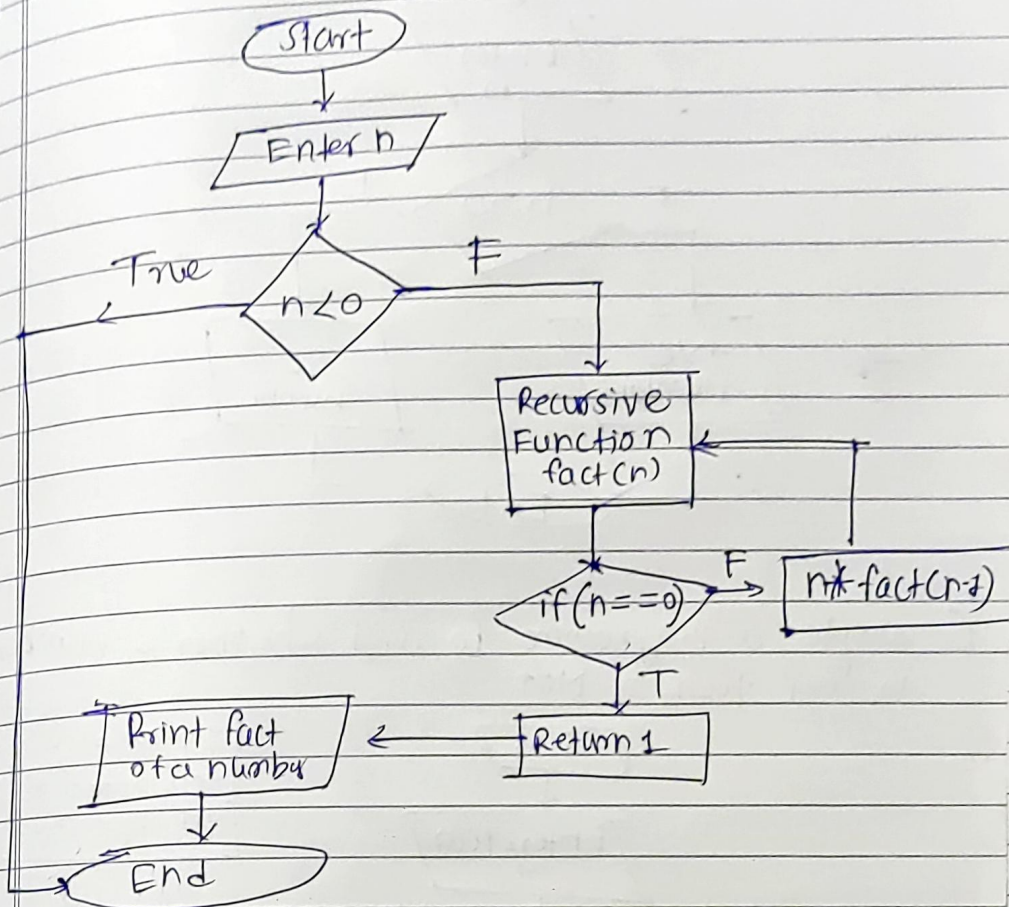 Start
Enter n
True
F
n<0
Recursive
Function
fact(n)
F
if(n==0)
n* fact(n-1)
T
Return 1
Print fact
of a number
End